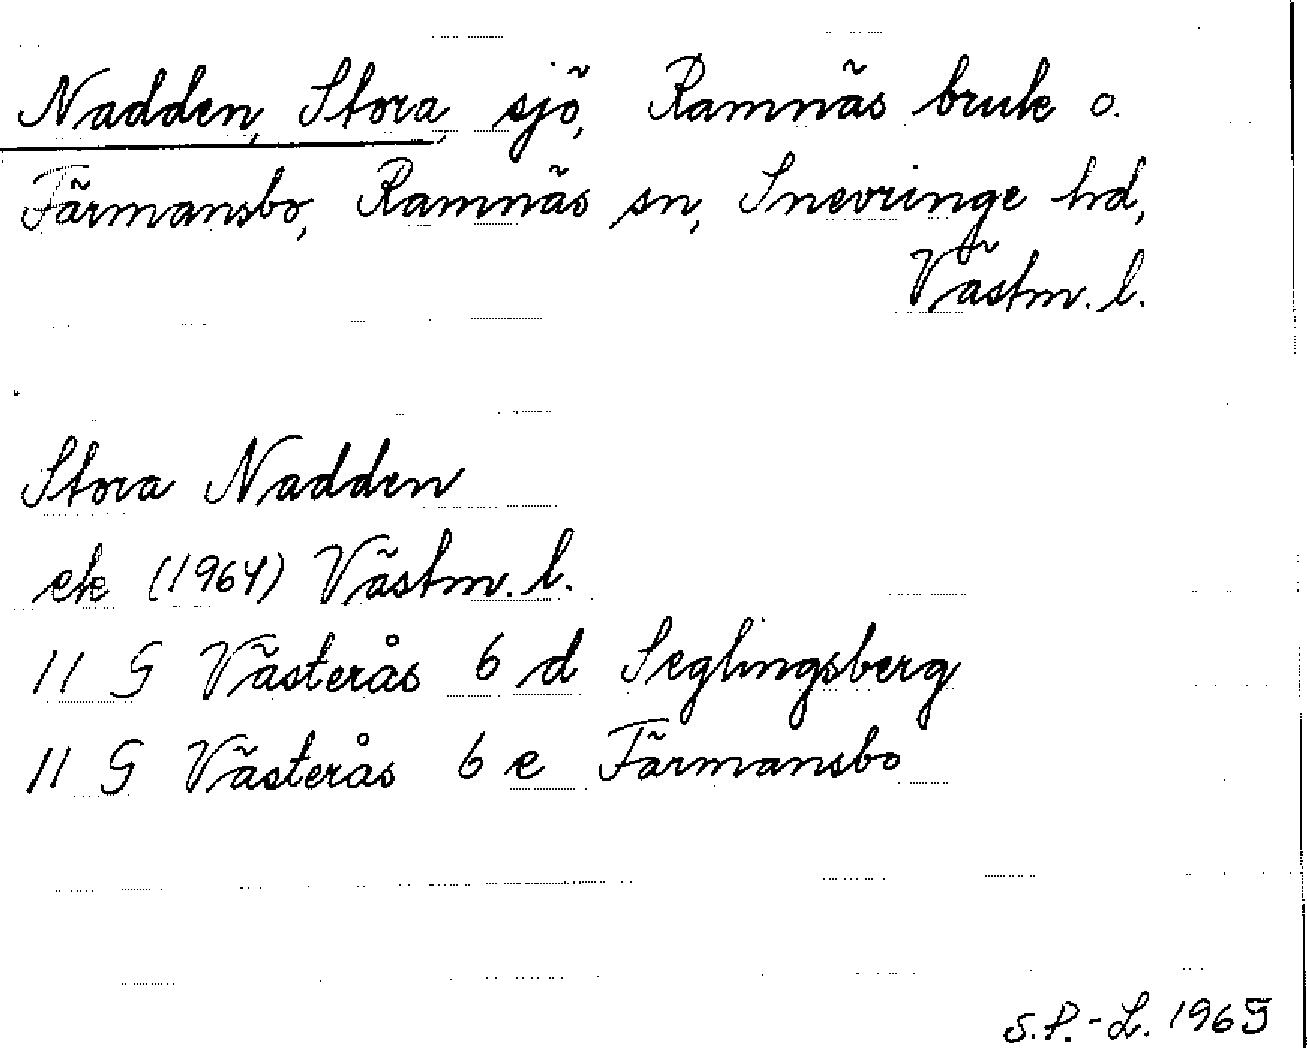 Nadden, Stora, sjö, Ramnäs bruk o.
Färmansbo, Ramnäs sn, Snevringe hd,
Västm. l.
Stora Nadden
ek (1964) Västm. l.
11 G Västerås 6 d Seglingsberg
11 G Västerås 6 e Färmansbo
S.P.-L. 1965